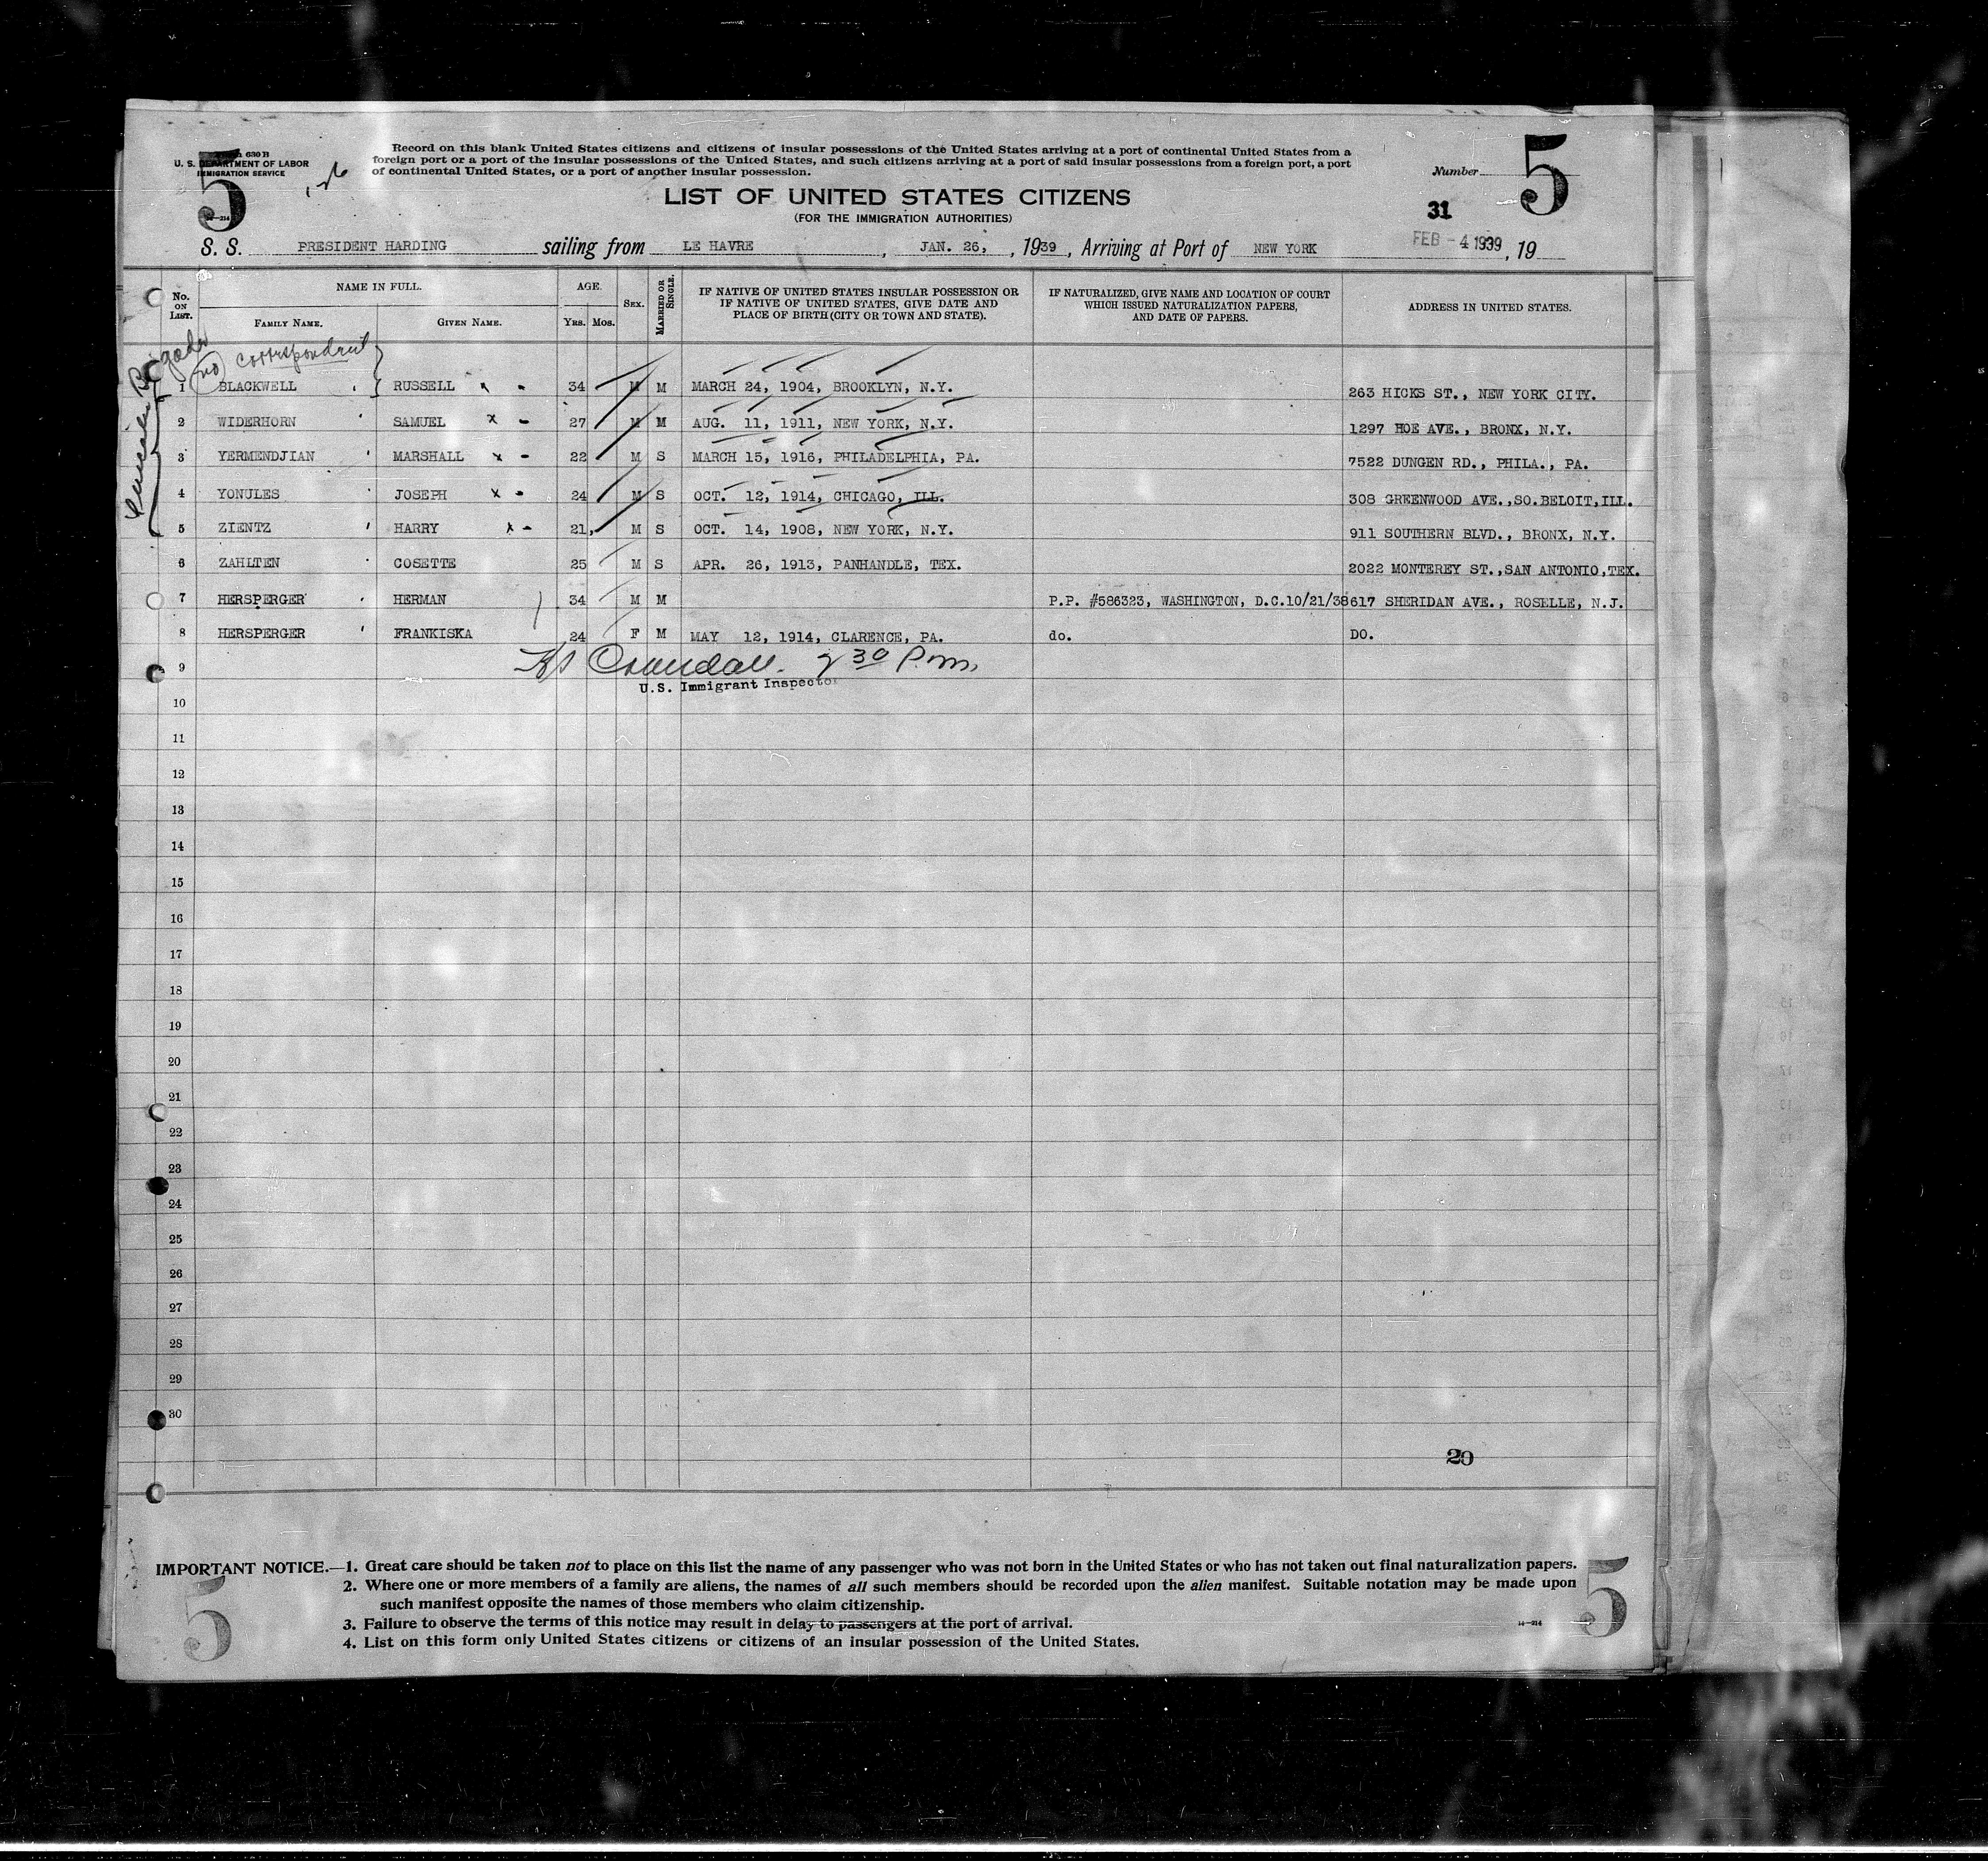 5
630 B
U. S. DEPARTMENT OF LABOR
IMMIGRATION SERVICE
14—214
Record on this blank United States citizens and citizens of insular possessions of the United States arriving at a port of continental United States from a
foreign port or a port of the insular possessions of the United States, and such citizens arriving at a port of said insular possessions from a foreign port, a port
of continental United States, or a port of another insular possession.
Number 5
LIST OF UNITED STATES CITIZENS
(FOR THE IMMIGRATION AUTHORITIES)
31
S. S. PRESIDENT HARDING sailing from LE HAVRE, JAN. 26, , 1939, Arriving at Port of NEW YORK FEB - 4 1939, 19
No. ON LIST. NAME IN FULL. FAMILY NAME. GIVEN NAME. AGE. YRS. MOS. SEX. MARRIED OR SINGLE. IF NATIVE OF UNITED STATES INSULAR POSSESSION OR IF NATIVE OF UNITED STATES, GIVE DATE AND PLACE OF BIRTH (CITY OR TOWN AND STATE). IF NATURALIZED, GIVE NAME AND LOCATION OF COURT WHICH ISSUED NATURALIZATION PAPERS, AND DATE OF PAPERS. ADDRESS IN UNITED STATES.
no correspondent
Brigade
1 BLACKWELL RUSSELL x - 34 M M MARCH 24, 1904, BROOKLYN, N.Y. 263 HICKS ST., NEW YORK CITY.
2 WIDERHORN SAMUEL x - 27 M M AUG. 11, 1911, NEW YORK, N.Y. 1297 HOE AVE., BRONX, N.Y.
3 YERMENDJIAN MARSHALL x - 22 M S MARCH 15, 1916, PHILADELPHIA, PA. 7522 DUNGEN RD., PHILA., PA.
4 YONULES JOSEPH x - 24 M S OCT. 12, 1914, CHICAGO, ILL. 308 GREENWOOD AVE.,SO.BELOIT,ILL.
5 ZIENTZ HARRY x - 21, M S OCT. 14, 1908, NEW YORK, N.Y. 911 SOUTHERN BLVD., BRONX, N.Y.
6 ZAHLTEN COSETTE 25 M S APR. 26, 1913, PANHANDLE, TEX. 2022 MONTEREY ST.,SAN ANTONIO,TEX.
7 HERSPERGER HERMAN 34 M M P.P. #586323, WASHINGTON, D.C.10/21/38 617 SHERIDAN AVE., ROSELLE, N.J.
8 HERSPERGER FRANKISKA 24 F M MAY 12, 1914, CLARENCE, PA. do. DO.
Crandall. 2 30 P.m.
9
U.S. Immigrant Inspector
10
11
12
13
14
15
16
17
18
19
20
21
22
23
24
25
26
27
28
29
30
20
IMPORTANT NOTICE.—1. Great care should be taken not to place on this list the name of any passenger who was not born in the United States or who has not taken out final naturalization papers.
2. Where one or more members of a family are aliens, the names of all such members should be recorded upon the alien manifest. Suitable notation may be made upon
such manifest opposite the names of those members who claim citizenship.
3. Failure to observe the terms of this notice may result in delay to passengers at the port of arrival.
4. List on this form only United States citizens or citizens of an insular possession of the United States.
14—214
5
5